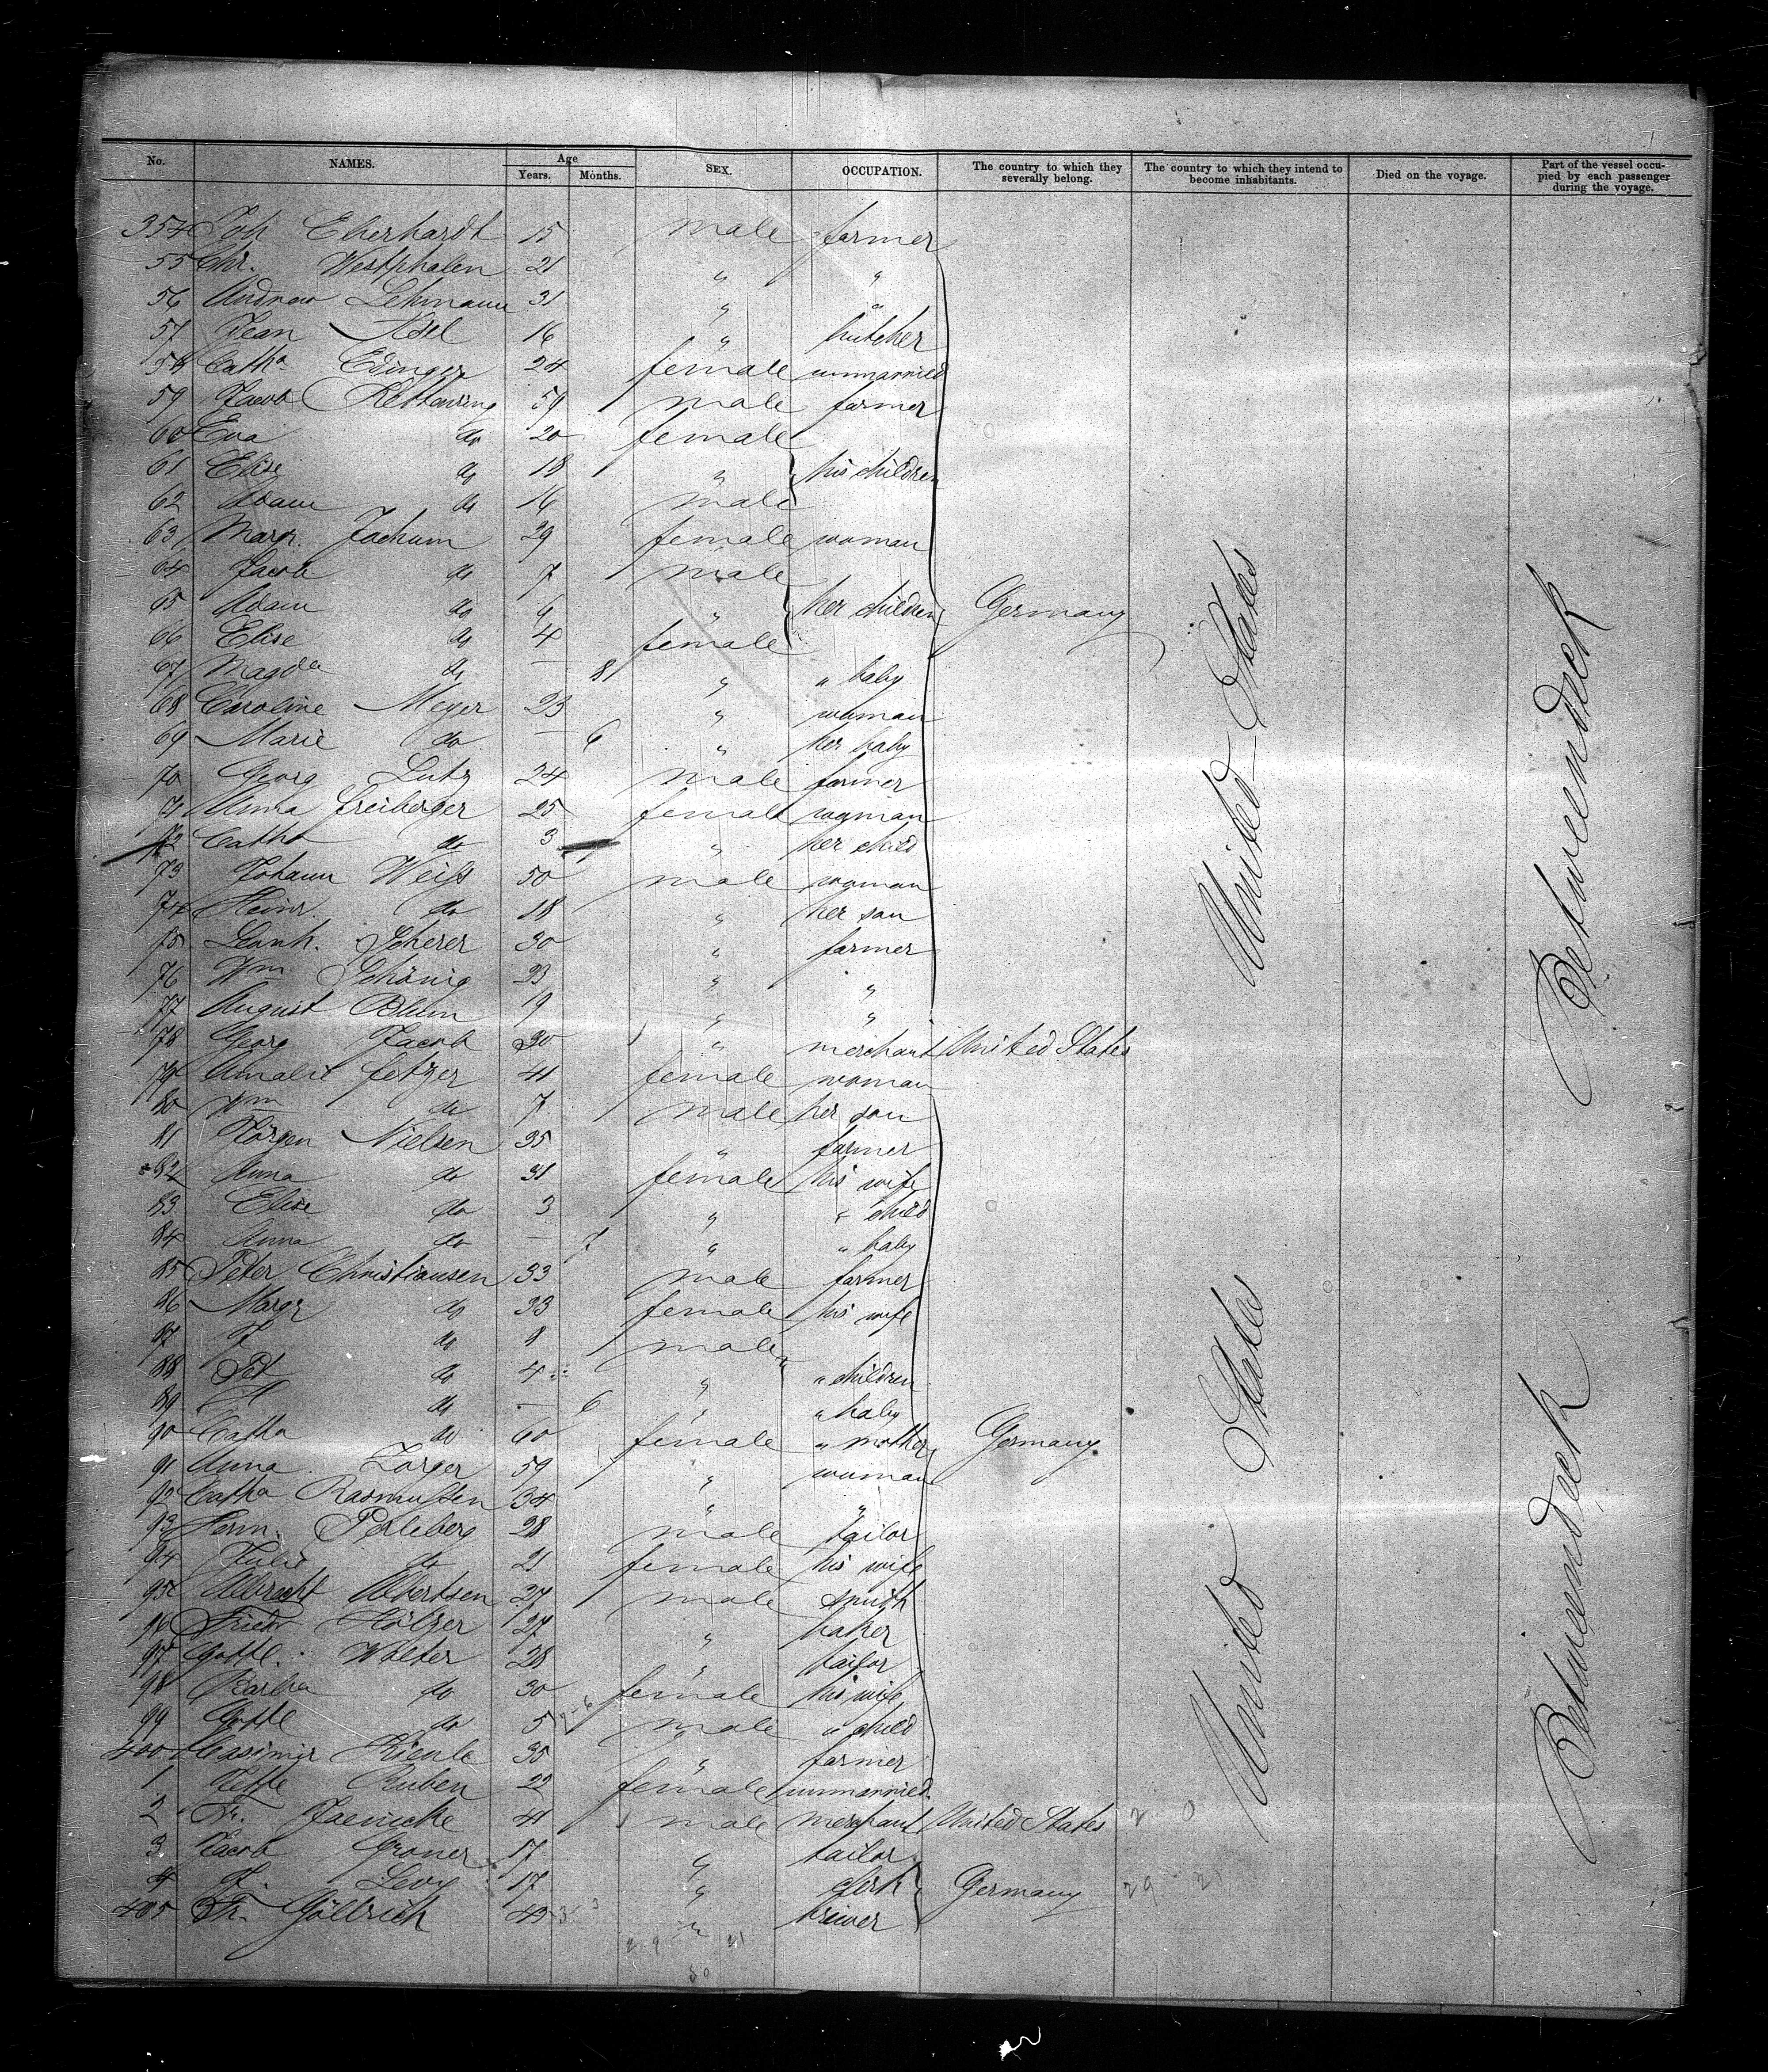 No. NAMES. Age SEX. OCCUPATION. The country to which they severally belong. The country to which they intend to become inhabitants. Died on the voyage. Part of the vessel occupied by each passenger during the voyage.
Years. Months.
354 Joh Eberhardt 15 male farmer
55 Chr. Westphalen 21 " "
56 Andrew Lehmann 31 " "
57 Jean 16 " butcher
58 Catha Edinger 24 female unmarried
59 Jacob Kettering 59 male farmer
60 Eva do 20 female
61 Elise do 18 " his children
62 Adam do 16 male
63 Margr. Jochum 29 female woman
64 Jacob do 7 male
65 Adam do 6 " her children Germany
66 Elise do 4 female
67 Magda do — 8 " " baby
68 Caroline Meyer 23 " woman
69 Marie do — 6 " her baby
70 Georg Lutz 24 male farmer
71 Anna Freiberger 25 female woman
72 Catha do 3 " her child
73 Johann Weiß 50 male woman
74 Heinr. do 18 " her son
75 Leonh. Scherer 30 " farmer
76 Wm Schönig 23 " "
77 August Blum 19 " "
78 Georg Jacob 30 " merchant United States
79 Amalie Fetzer 41 female woman
80 Wm do 7 male her son
81 Jörgen Nielsen 35 " farmer
82 Anna do 31 female his wife
83 Elise do 3 " " child
84 Anna do — 7 " " baby
85 Peter Christiansen 33 male farmer
86 Margr do 33 female his wife
87 J do 8 male
88 Pet do 4 " " children
89 do — 6 " " baby
90 Catha do 60 female " mother Germany
91 Anna Zorger 59 " woman
92 Catha Rasmussen 34 " "
93 Herm. Perleberg 28 male tailor
94 Julie do 21 female his wife
95 Albrecht Albertsen 27 male smith
96 Friedr Hölzer 27 " baker
97 Gottl. Walter 28 " tailor
98 Barba do 30 female his wife
99 Gottl do 5 male " child
400 Casimir Kienle 35 " farmer
1 Ruben 22 female unmarried
2 Fr. Jaenicke 41 male merchant United States 2 0
3 Jacob Groner 17 " tailor
4 J. Levy 17 " clerk Germany 29 21
405 Fr. Göllrich 43 " brewer
29 21
50
United States
Betweendeck
United States
Betweendeck